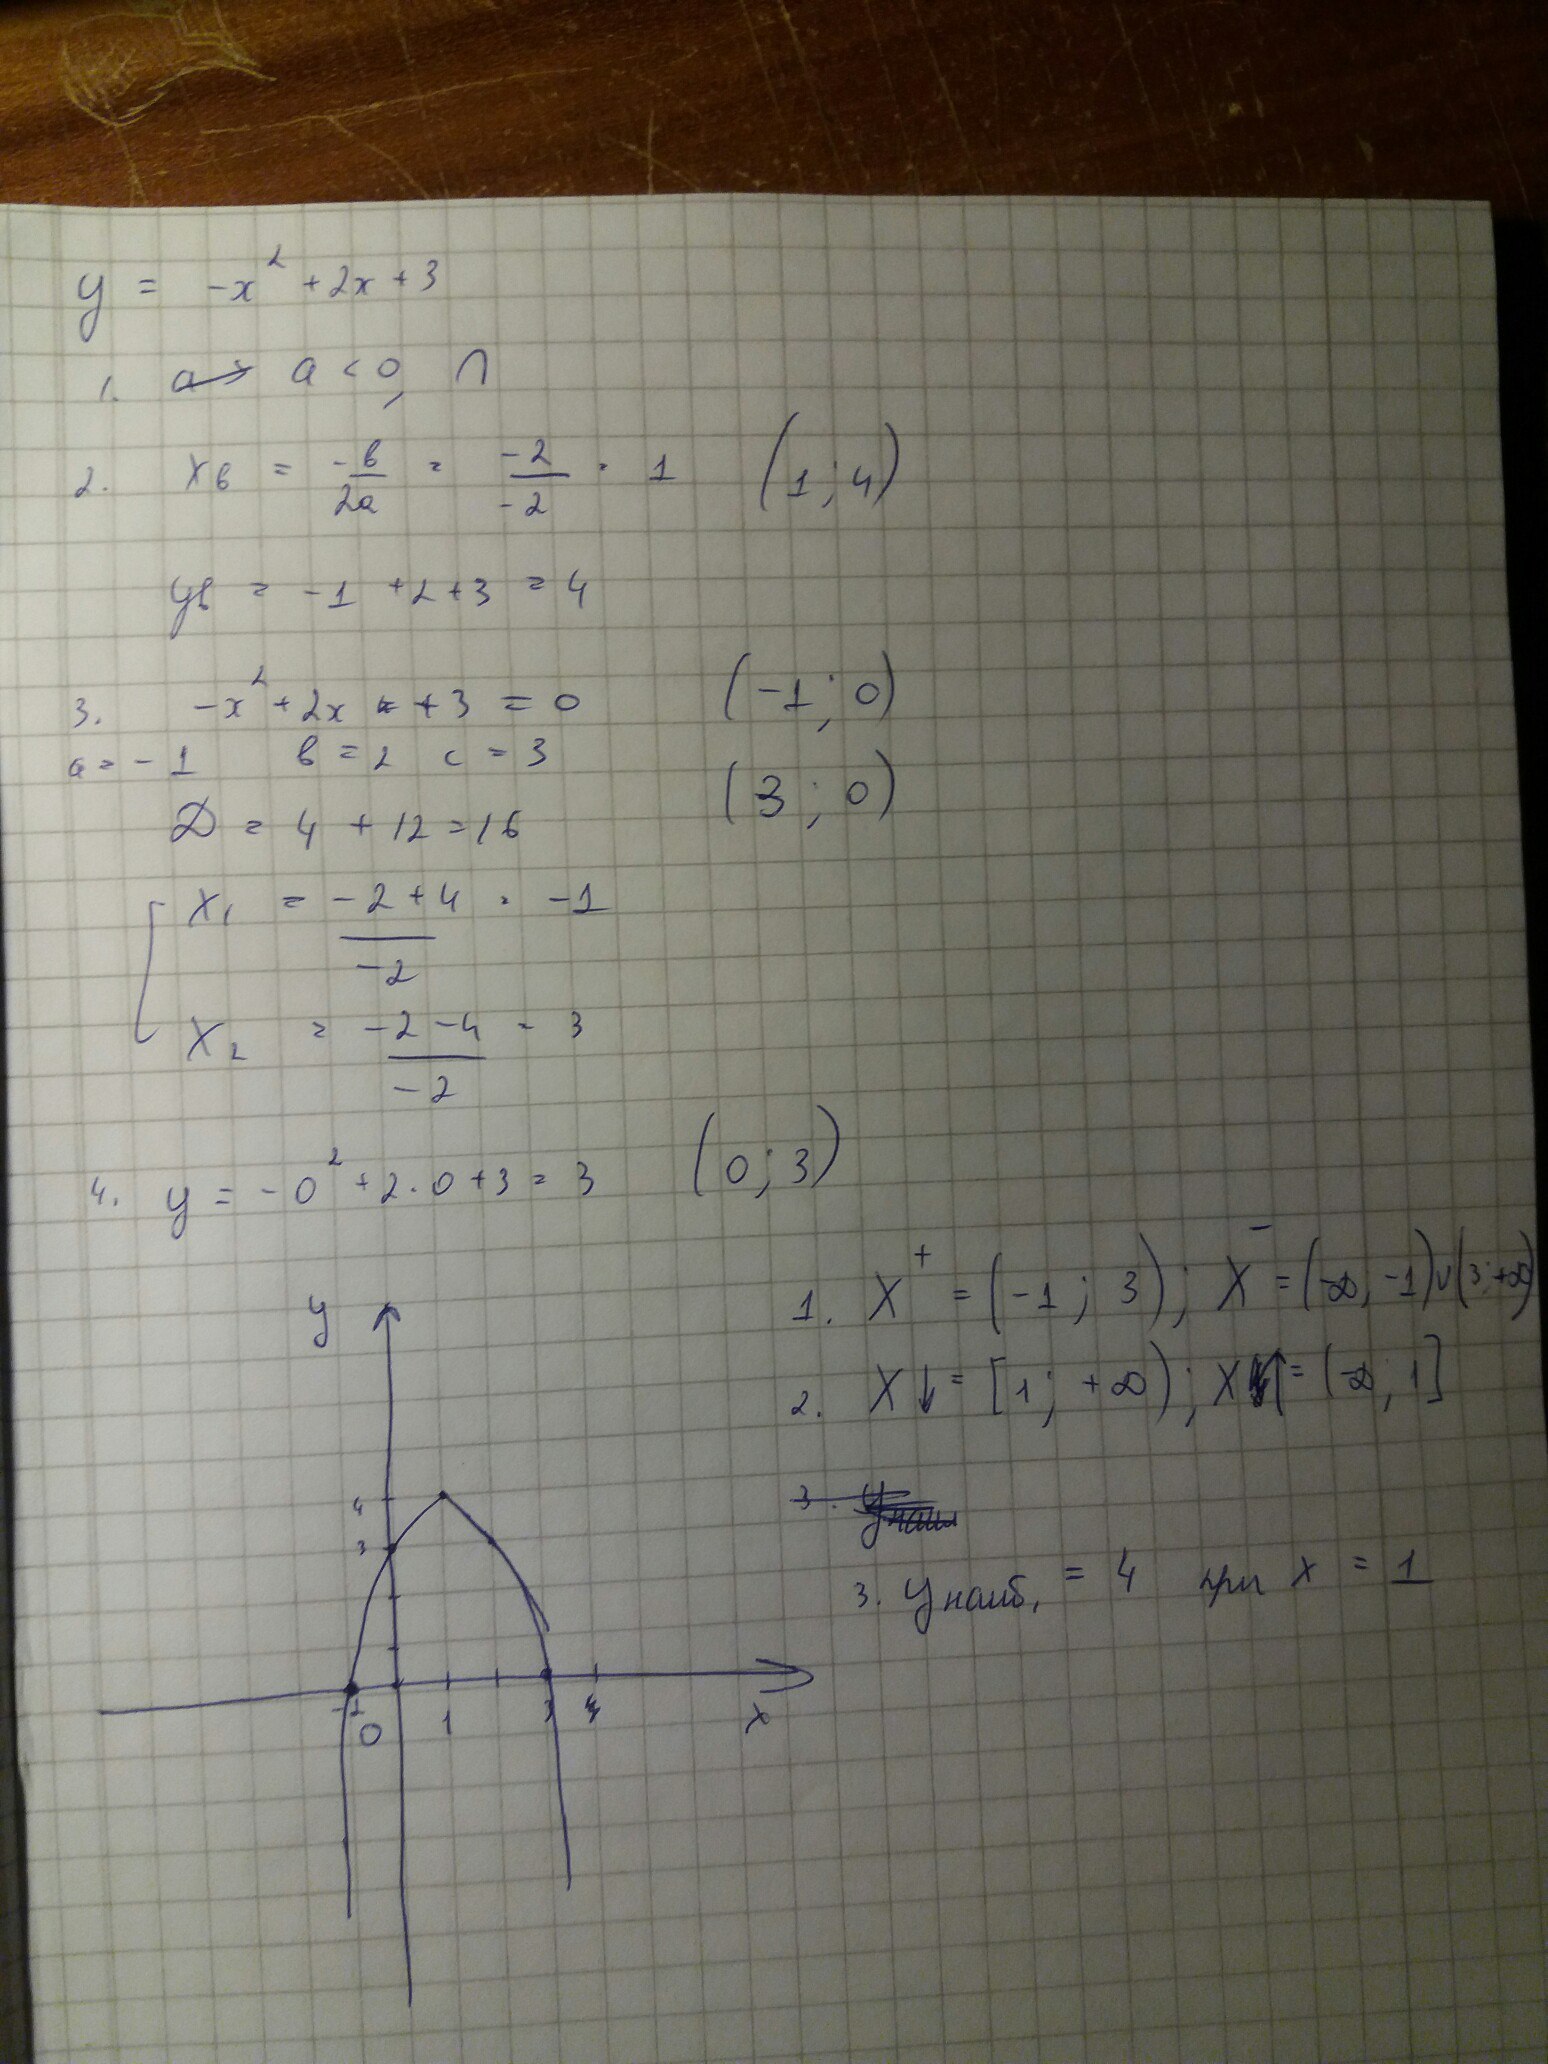 y = -x² + 2x + 3
1. a > a < 0, ∩
2. xв = -в/2a = -2/-2 = 1 (1; 4)
yв = -1 + 2 + 3 = 4
3. -x² + 2x + 3 = 0 (-1; 0)
a = -1 в = 2 c = 3
(3; 0)
D = 4 + 12 = 16
x₁ = -2+4/-2 = -1
x₂ = -2-4/-2 = 3
4. y = -0² + 2·0 + 3 = 3 (0; 3)
1. X⁺ = (-1; 3); X⁻ = (-∞, -1)∪(3; +∞)
2. X↓ = [1; +∞); X↑ = (-∞; 1]
3. yнаи
3. yнаиб. = 4 при x = 1
y
4
3
-1 0 1 3 4 x